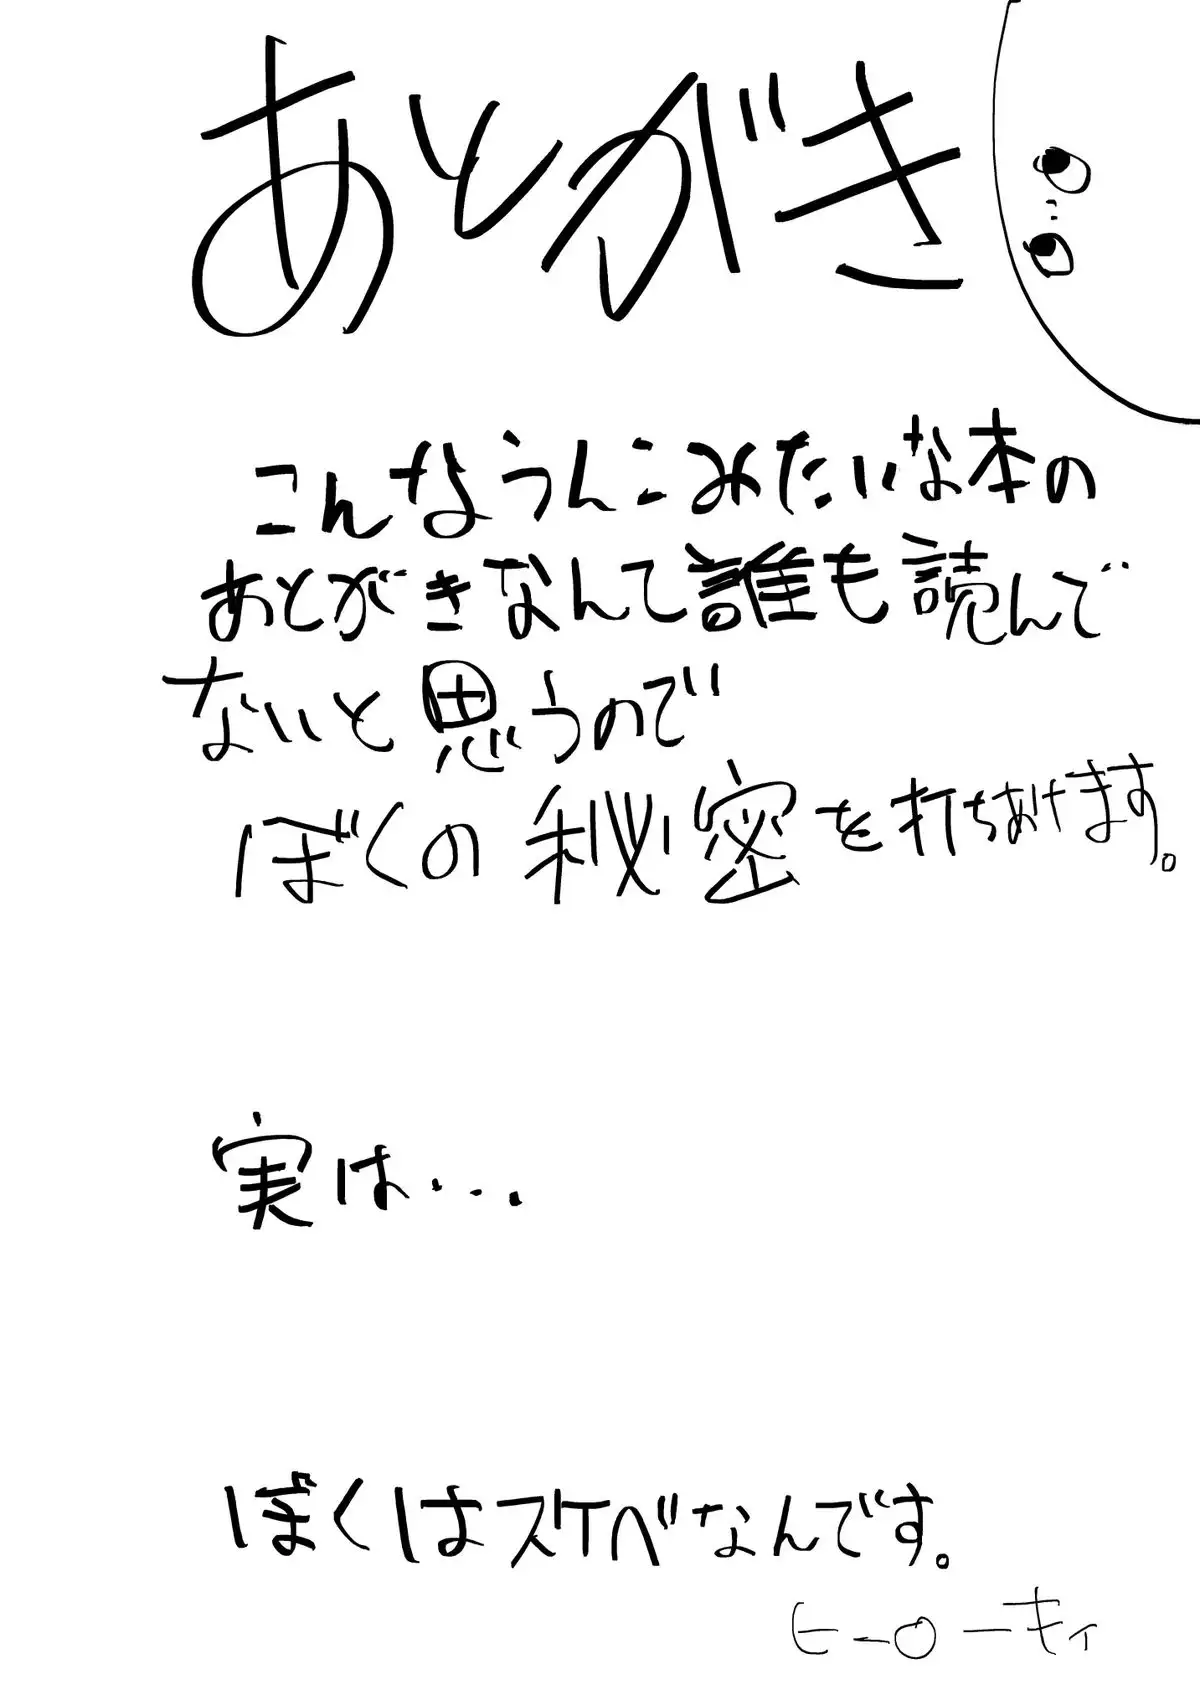 あとがき
こんなうんこみたいな本の
あとがきなんて誰も読んで
ないと思うので
ぼくの秘密を打ちあけます。
実は・・・
ぼくはスケベなんです。
ヒーローキィ